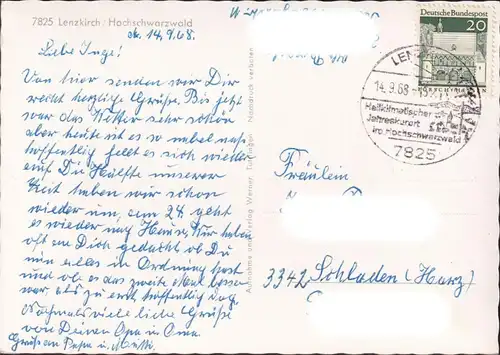 7825 Lenzkirch / Hochschwarzwald
d. 14.9.68.
Liebe Inge!
Von hier senden wir Dir
recht herzliche Grüße. Bis jetzt
war das Wetter sehr schön
aber heute ist es so nebel naß
hoffentlich hellt es sich wieder
auf. Die Hälfte unserer
Zeit haben wir schon
wieder um, am 24. geht
es wieder nach Hause, Wir haben
oft an Dich gedacht ob Du
nun alles in Ordnung hast
und ob es das zweite Mal besser
war, als zu erst, hoffentlich
Nochmals viele liebe Grüße
von Deinen Opa u. Oma.
Grüße an Papa u. Mutti.
Aufnahme und Verlag Werner Nachdruck verboten
Deutsche Bundespost
20
LEN
14.9.68
Heilklimatischer
Jahreskurort
im Hochschwarzwald
7825
Fräulein
3342 Schladen (Harz)